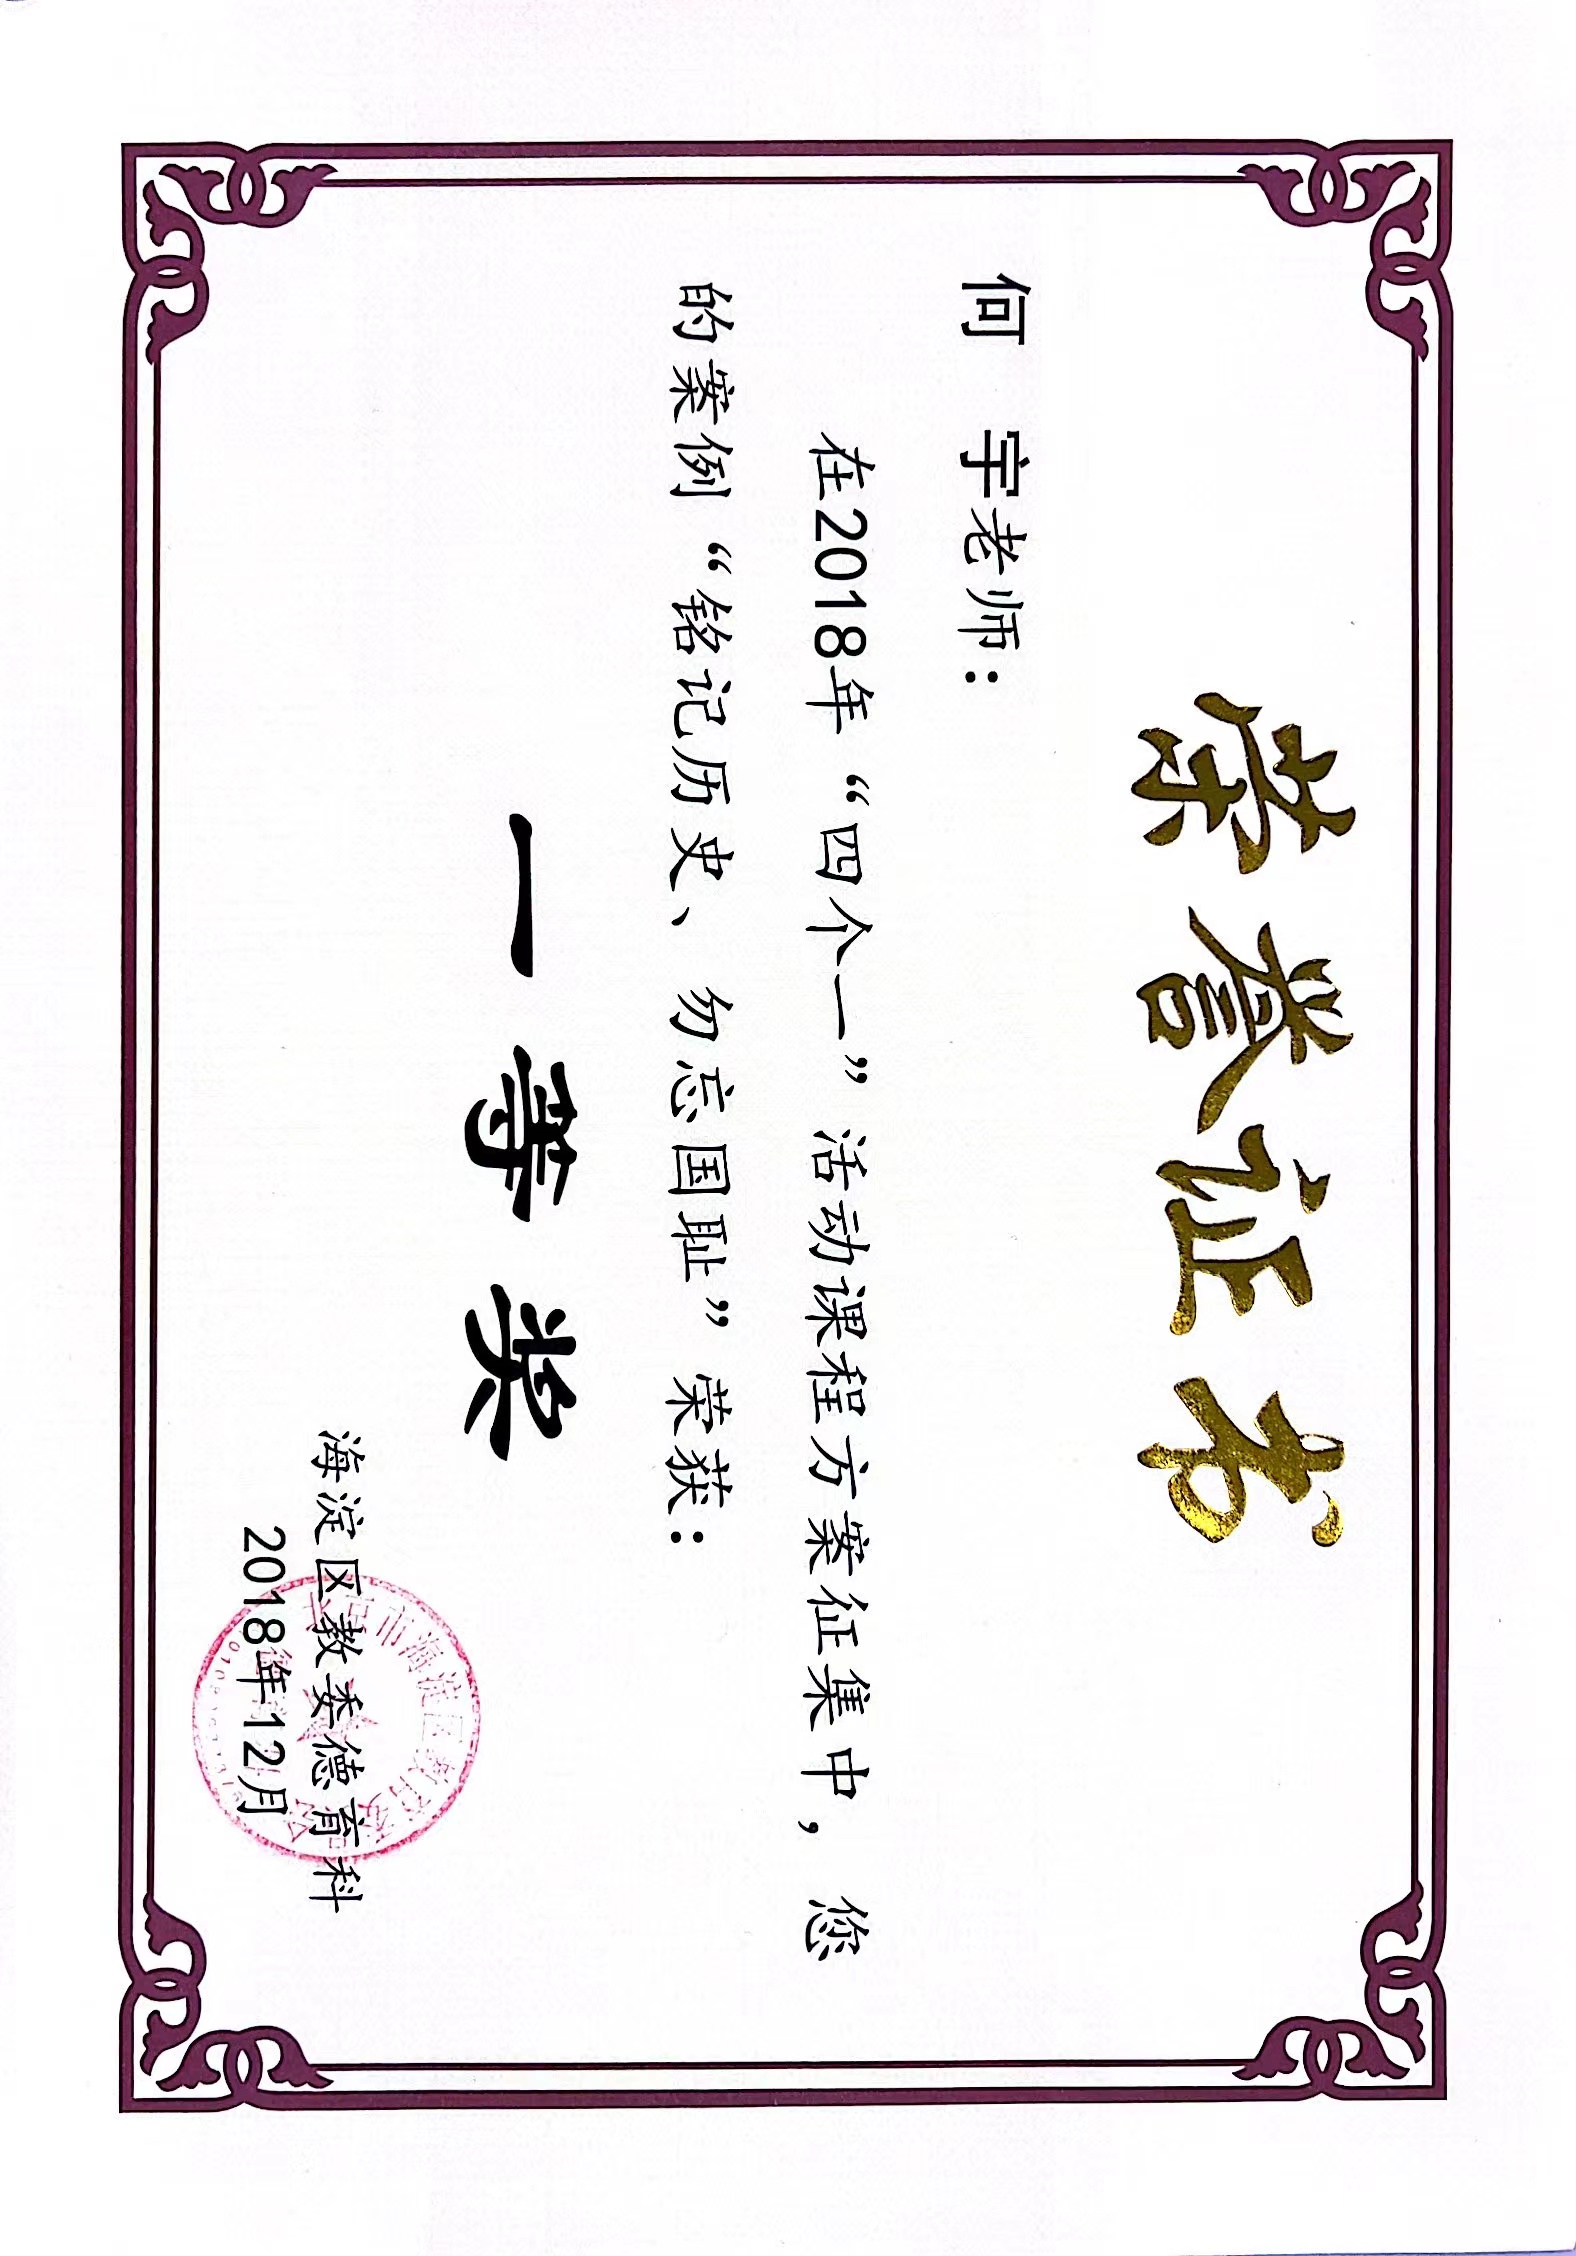 荣誉证书
何 宇老师：
在2018年“四个一”活动课程方案征集中，您
的案例“铭记历史、勿忘国耻”荣获：
一等奖
海淀区教委德育科
2018年12月